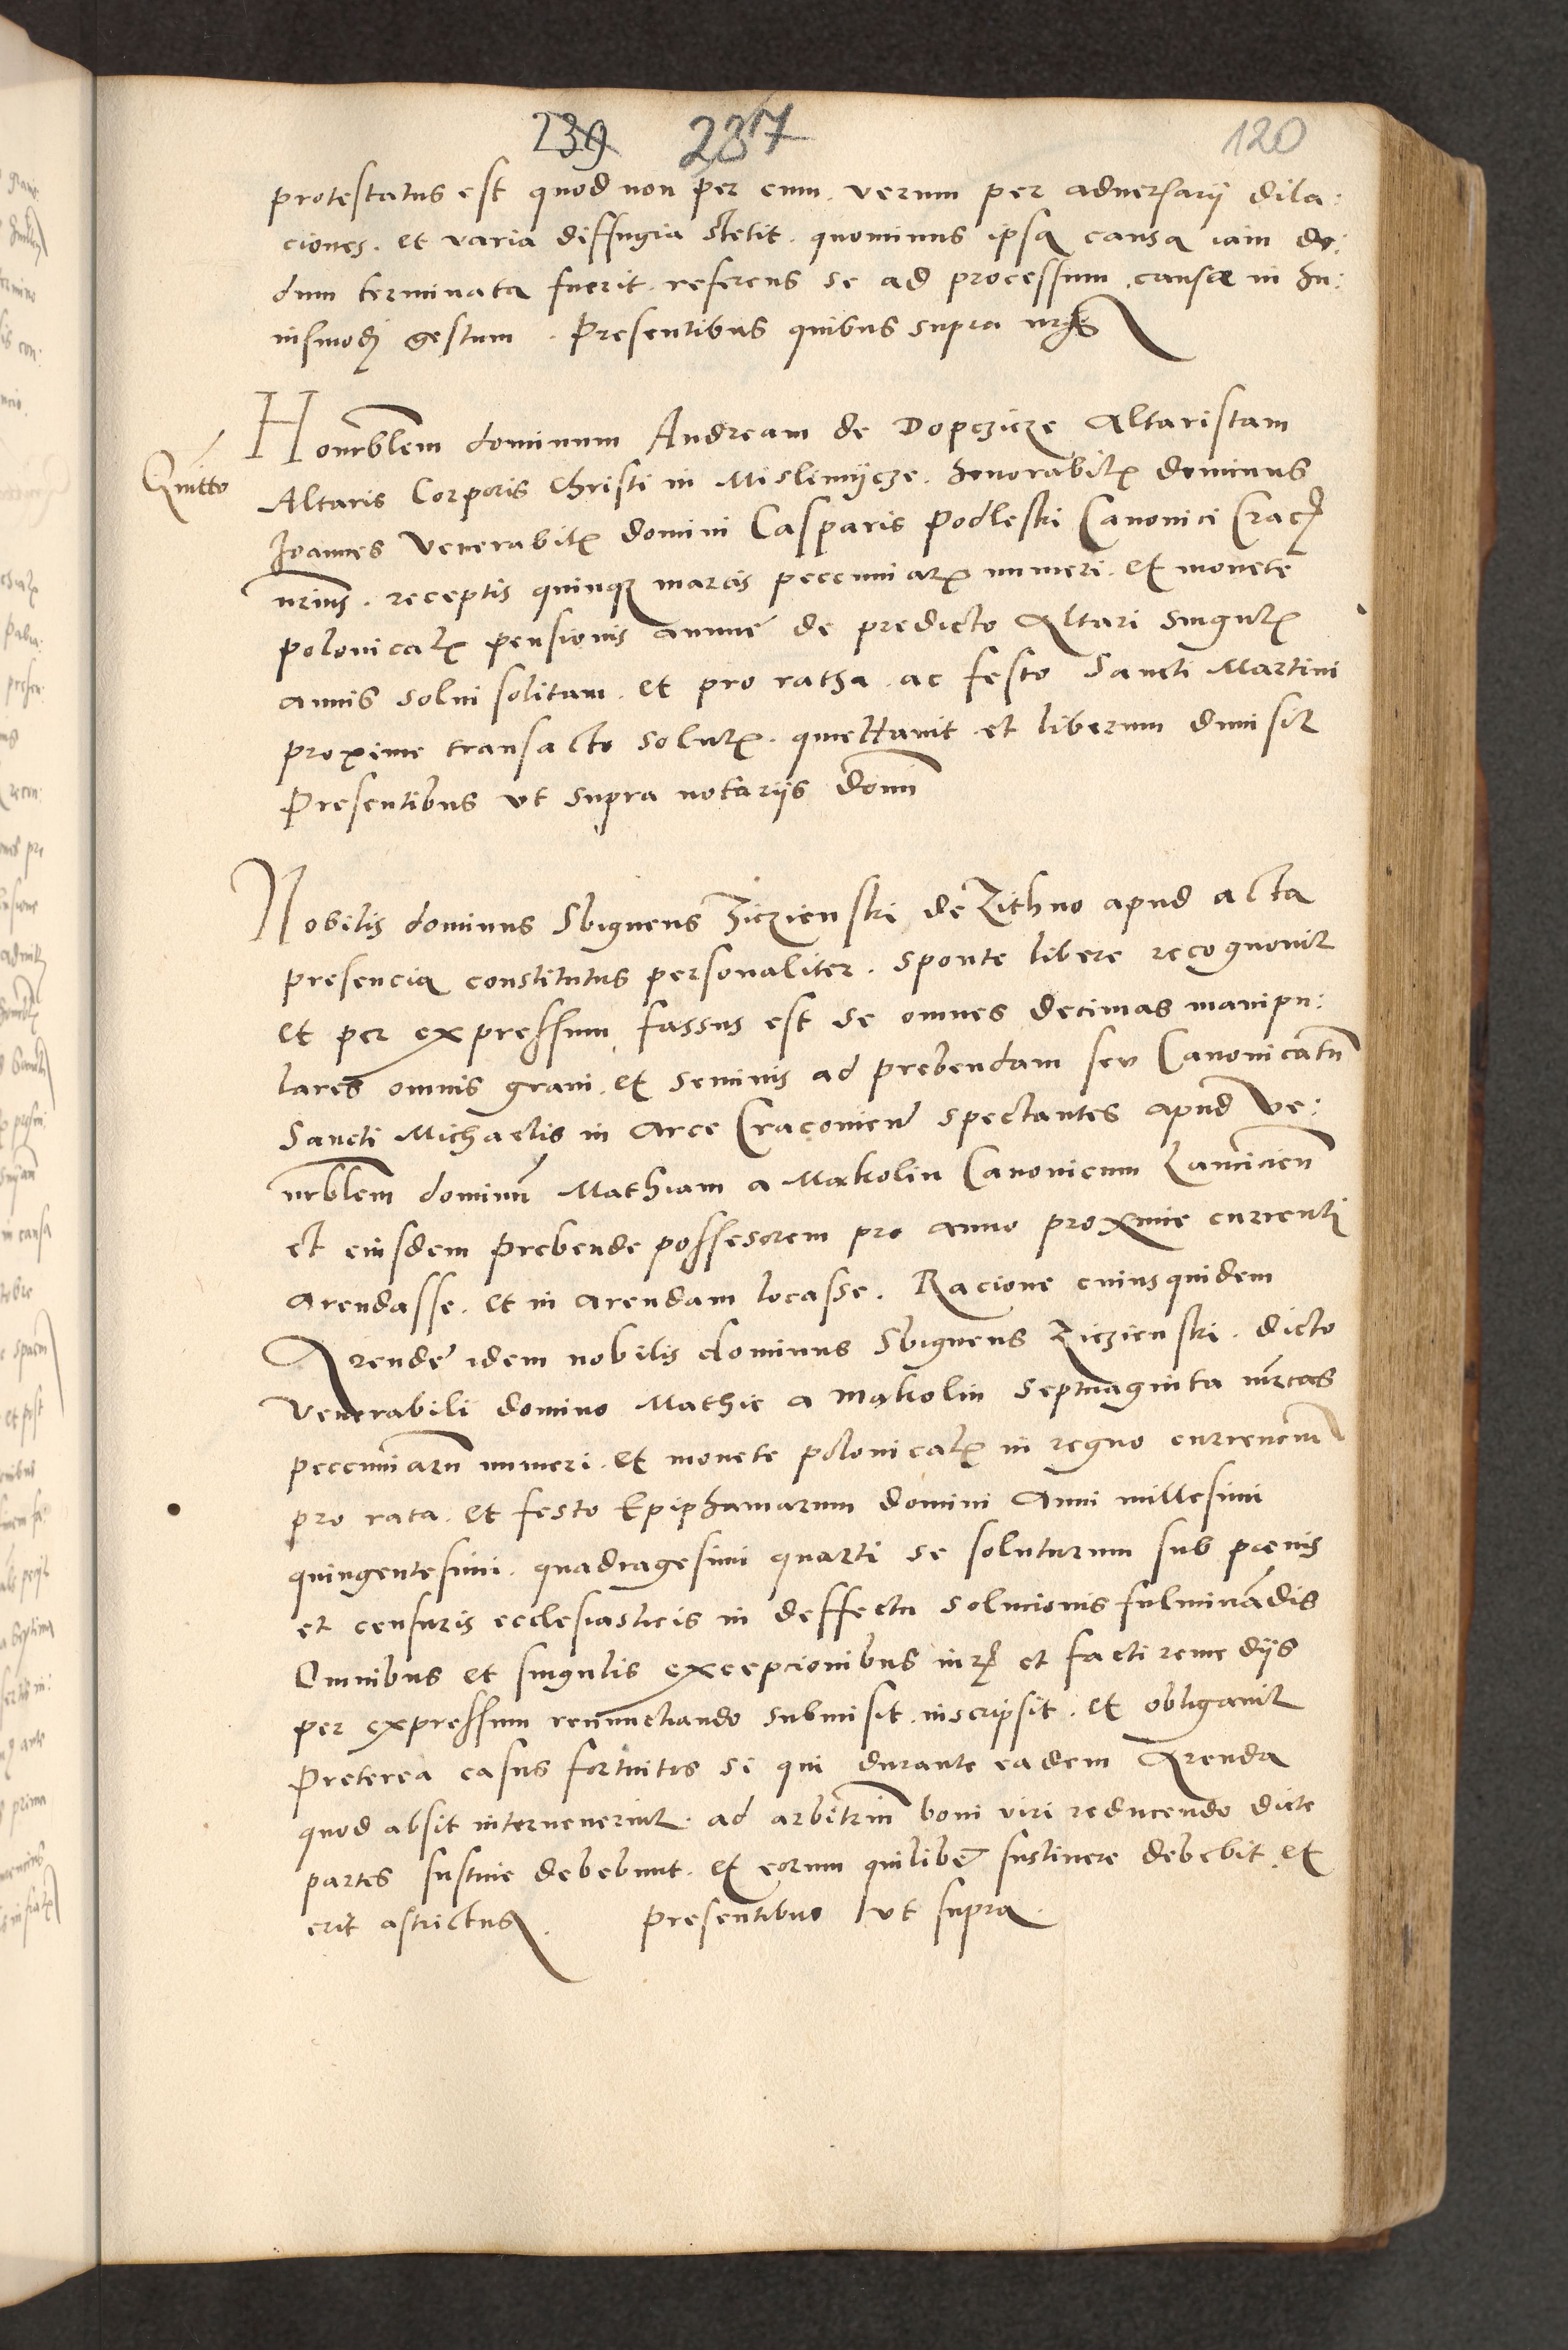 239 237 120
protestatus est quod non per eum. verum per aduersarij dila:
ciones. et varia diffugia stetit. quominus ipsa causa iam du:
dum terminata fuerit. referens se ad processum. causæ in hu:
iusmodj gestum. Presentibus quibus supra
Honorablem dominum Andream de Dopczicze Altaristam
Quitto
Altaris Corporis Christi in Mislimijcze. honorabilis dominus
Joannes Venerabilis domini Casparis Podleski Canonici Crac
receptis quinque marcis peccuniarum numeri. et monete
polonicalis pensionis annue de predicto Altari singulis
annis solui solitam. et pro ratha. ac festo Sancti Martini
proxime transacto solutis. quiettauit et liberum dimisit
Presentibus vt supra notariis domi
Nobilis dominus Sbigneus Ziczienski de Zithno apud acta
presencia constitutus personaliter. sponte libere recognouit
et per expressum fassus est se omnes decimas manipu:
lares omnis grani. et seminis ad prebendam seu Canonicatum
Sancti Michaelis in arce Cracouien spectantes apud Ve:
nerablem dominum Mathiam a Makolin Canonicum Lancicien
et eiusdem prebende possesorem pro anno proxime currenti
arendasse. et in arendam locasse. Racione cuiusquidem
Arende idem nobilis dominus Sbigneus Ziczienski. dicto
Venerabili domino Mathie a Makolin septuaginta mrcas
peccuniarum numeri. et monete polonicalis in regno currencium
pro rata. et festo Epiphaniarum domini Anni millesimi
quingentesimi. quadragesimi quarti se soluturum sub pœnis
et censuris ecclesiasticis in deffectu solucionis fulminandis
Omnibus et singulis excepcionibus iuris et facti remediis
per expressum renunctiando submisit. inscripsit. et obligauit
Preterea casus fortuitos si qui durante eadem Arenda
quod absit interuenerint. ad arbitrium boni viri reducendo dicte
partes sustine debebunt. et eorum quilibet sustinere debebit et
erit astrictus. Presentibus vt supra.